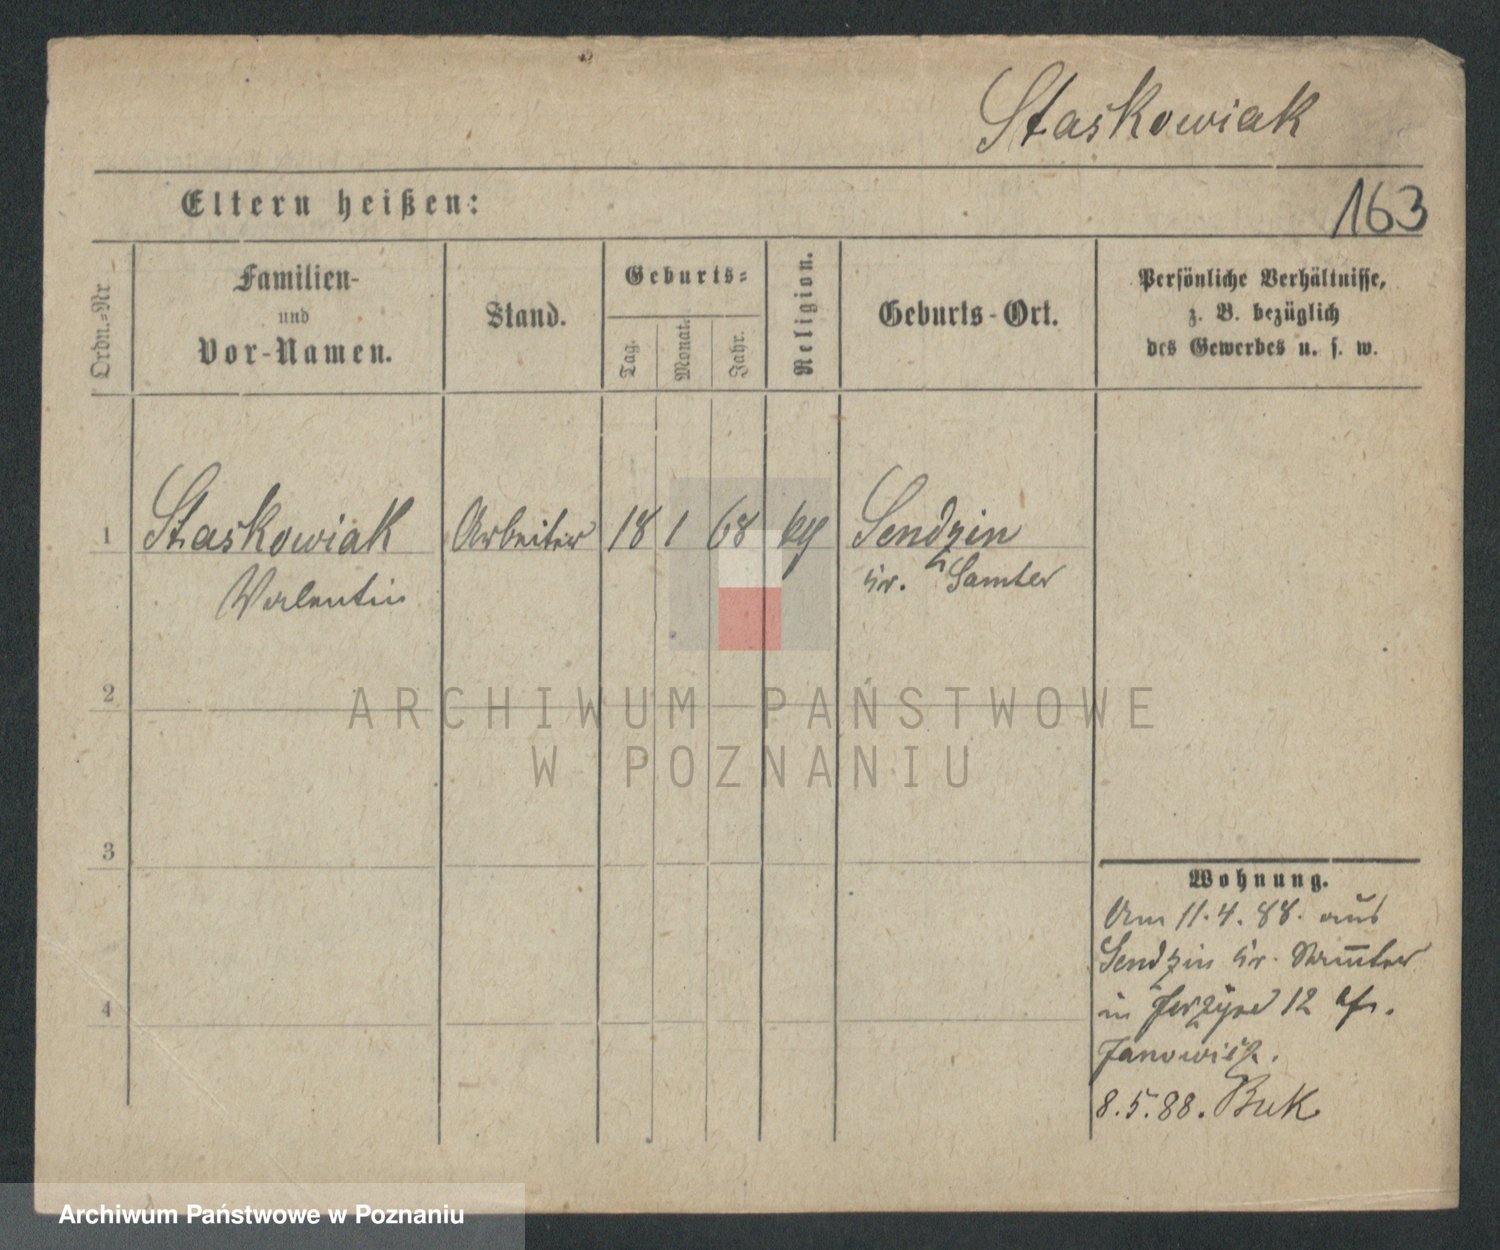 Staskowiak
Eltern heißen:
163
Ordn.-Nr
Familien-
und
Vor-Namen.
Stand.
Geburts-
Tag.
Monat.
Jahr.
Religion.
Geburts-Ort.
Persönliche Verhältnisse,
z. B. bezüglich
des Gewerbes u. s. w.
1 Staskowiak Arbeiter 18 1 68 Sendzin
Valentin Kr. Samter
2
ARCHIWUM PAŃSTWOWE
W POZNANIU
3
Wohnung.
Am 11.4.88. aus
Sendzin Kr. Samter
in 12
4
8.5.88. Buk
Archiwum Państwowe w Poznaniu